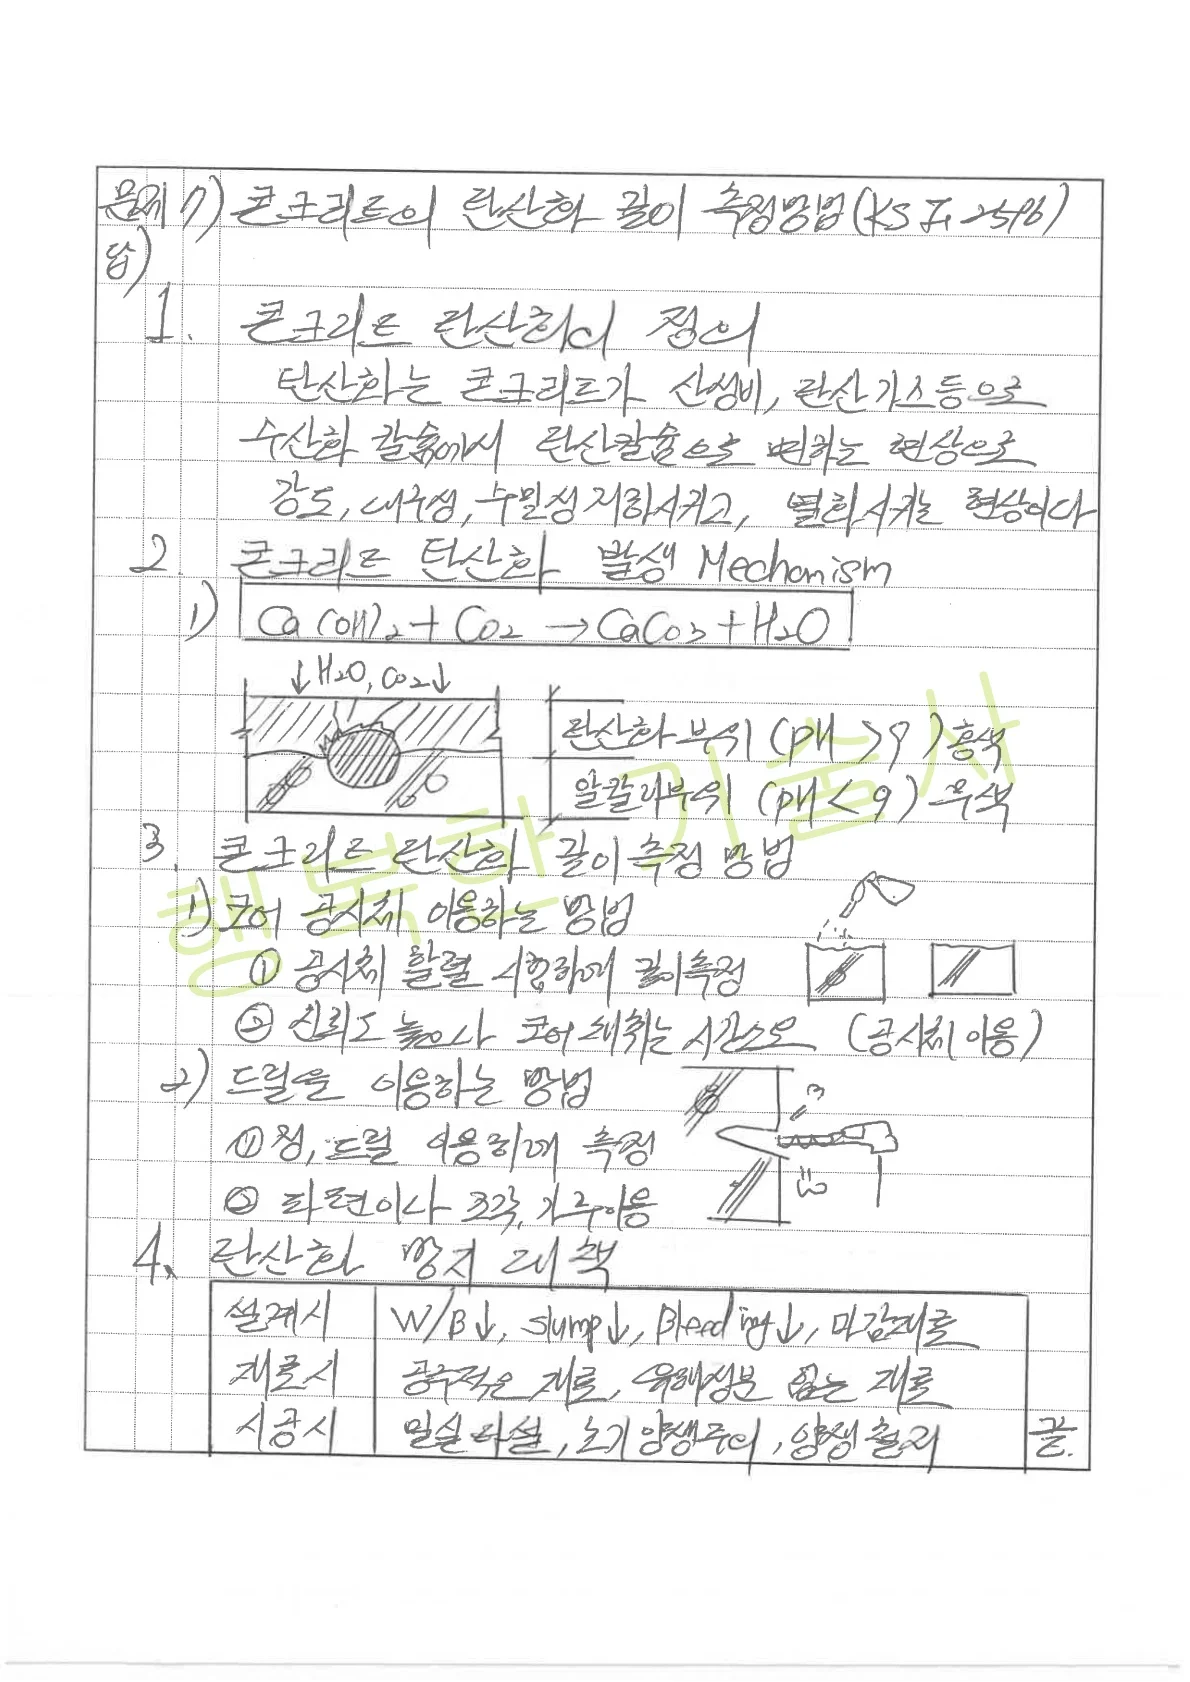 문제 7) 콘크리트의 탄산화 깊이 측정방법(KS F 2596)
답)
1. 콘크리트 탄산화의 정의
탄산화는 콘크리트가 산성비, 탄산가스등으로
수산화 칼슘에서 탄산칼슘으로 변하는 현상으로
강도, 내구성, 수밀성 저하시키고, 열화시키는 현상이다
2. 콘크리트 탄산화 발생 Mechanism
1) Ca(OH)2 + CO2 → CaCO3 + H2O
↓H2O, CO2↓
탄산화 부위 (pH > 9) 흑색
알칼리부위 (pH < 9) 무색
3. 콘크리트 탄산화 깊이 측정 방법
1) 코어 공시체 이용하는 방법
① 공시체 할렬 시험하여 깊이측정
② 신뢰도 높으나 코어채취는 시간소모 (공시체 이용)
2) 드릴을 이용하는 방법
① 정, 드릴 이용하여 측정
② 파편이나 조각, 가루이용
4. 탄산화 방지 대책
설계시 W/B↓, slump↓, Bleeding↓, 마감재료
재료시 공극적은 재료, 유해성분 없는 재료
시공시 밀실타설, 초기양생주의, 양생철저 끝.
행복한기술사